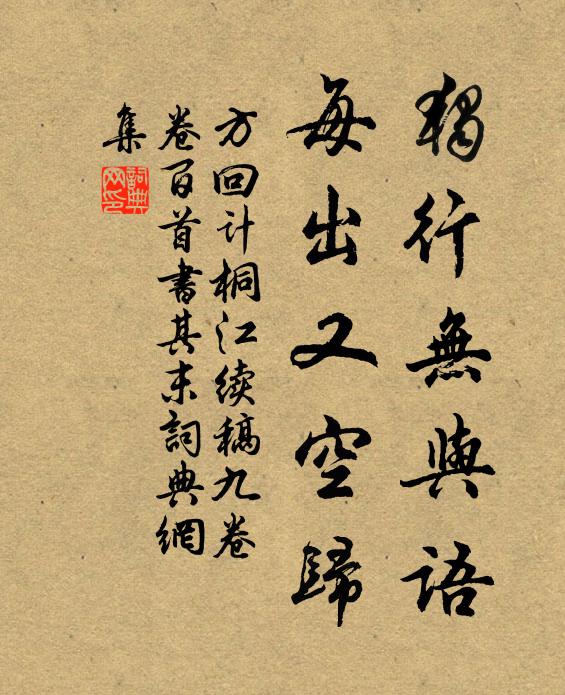 獨行無與語
每出又空歸
方回计桐江续稿九卷
卷百首書其末詞典網
集
詞典网印